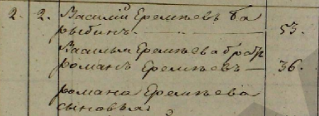 2. 2. Василий Еремѣевъ Ба
рыбинъ. 53.
Василья Еремѣева братъ
романъ Еремѣевъ 36.
романа Еремѣева
сыновья